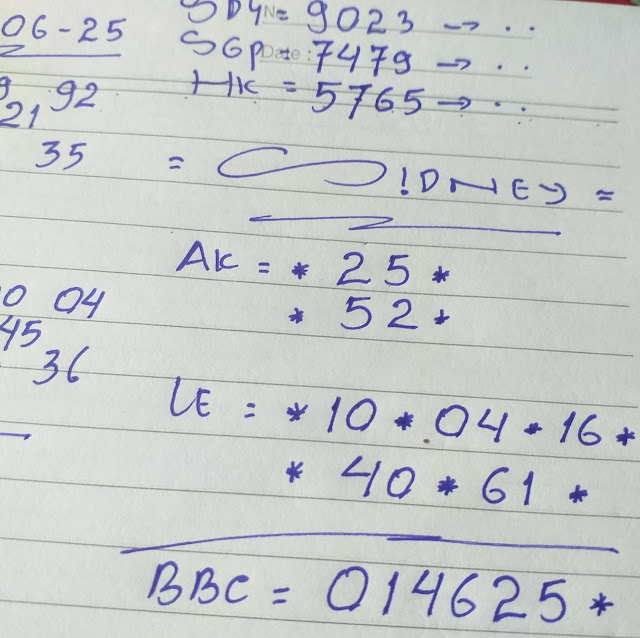 SDY = 9023 → ..
06-25 SGP = 7479 → ..
HK = 5765 → ..
9 92
21
35 = S!DNEY =
AK = * 25 *
0 04 * 52 *
45
36
LE = * 10 * 04 * 16 *
* 40 * 61 *
BBC = 014625 *